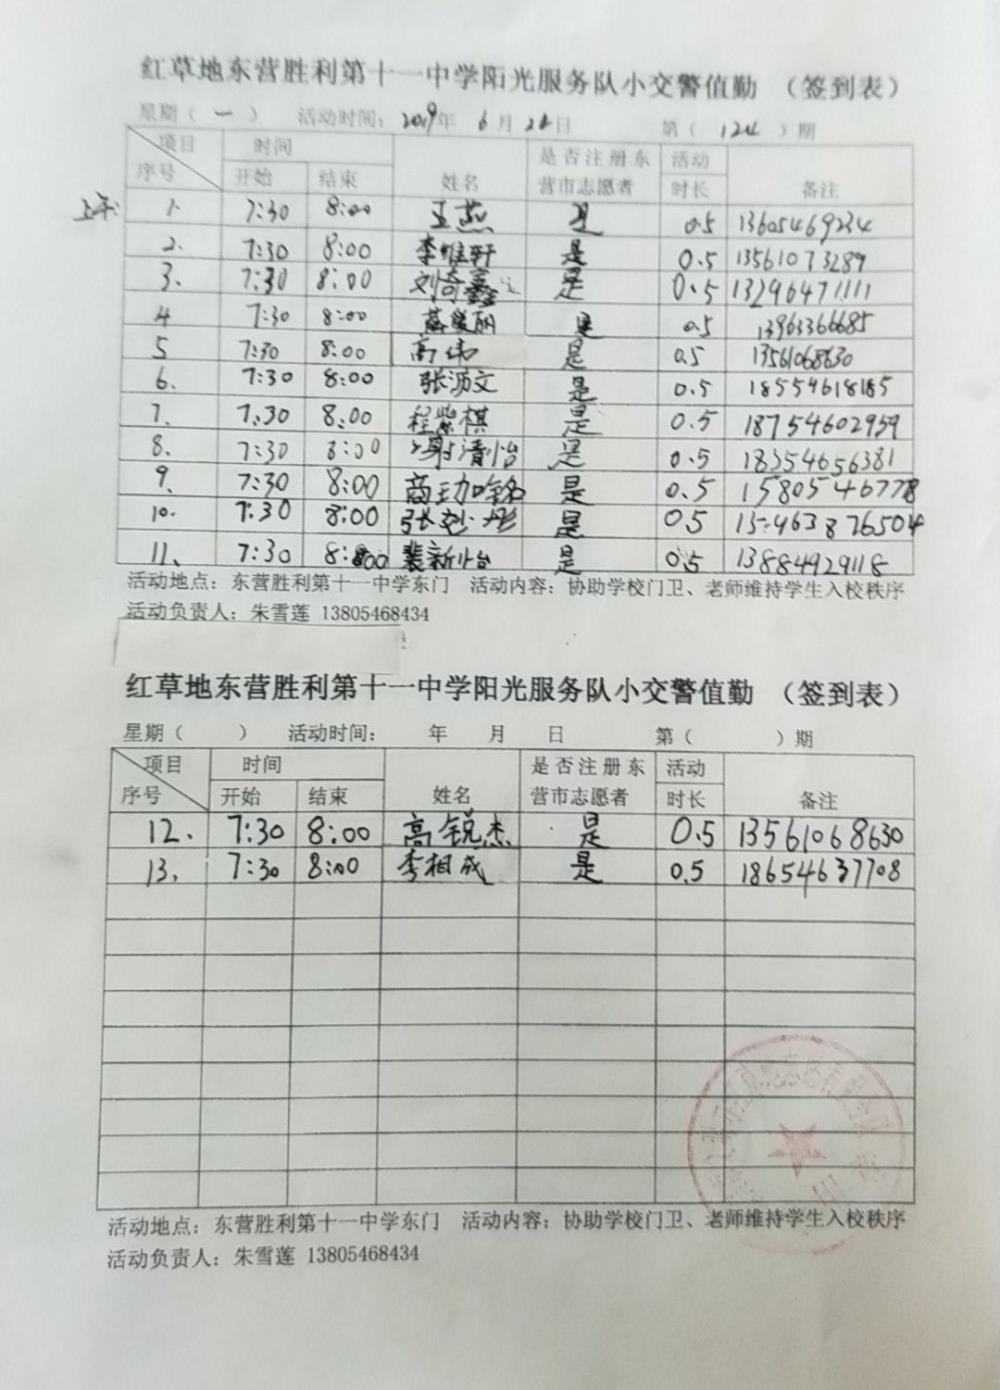 红草地东营胜利第十一中学阳光服务队小交警值勤 （签到表）
星期（ 一 ） 活动时间: 2019年 6月 日 第（ 124 ）期
项目 时间 是否注册东 活动
序号 开始 结束 姓名 营市志愿者 时长 备注
上午:
1. 7:30 8:00 王燕 是 0.5 13605469234
2. 7:30 8:00 李惟轩 是 0.5 13561073289
3. 7:30 8:00 刘奇鑫 是 0.5 13296471111
4 7:30 8:00 是 0.5 13963366685
5 7:30 8:00 高伟 是 0.5 13561068630
6. 7:30 8:00 张沥文 是 0.5 18554618185
7. 7:30 8:00 程紫棋 是 0.5 18754602959
8. 7:30 8:00 谢清怡 是 0.5 18354656381
9. 7:30 8:00 是 0.5 15805467778
10. 7:30 8:00 是 0.5
11. 7:30 8:00 裴新怡 是 0.5 13884929118
活动地点: 东营胜利第十一中学东门 活动内容: 协助学校门卫、老师维持学生入校秩序
活动负责人: 朱雪莲 13805468434
红草地东营胜利第十一中学阳光服务队小交警值勤 （签到表）
星期（ ） 活动时间: 年 月 日 第（ ）期
项目 时间 是否注册东 活动
序号 开始 结束 姓名 营市志愿者 时长 备注
12. 7:30 8:00 高锐杰 是 0.5 13561068630
13. 7:30 8:00 李相成 是 0.5 18654637708
活动地点: 东营胜利第十一中学东门 活动内容: 协助学校门卫、老师维持学生入校秩序
活动负责人: 朱雪莲 13805468434